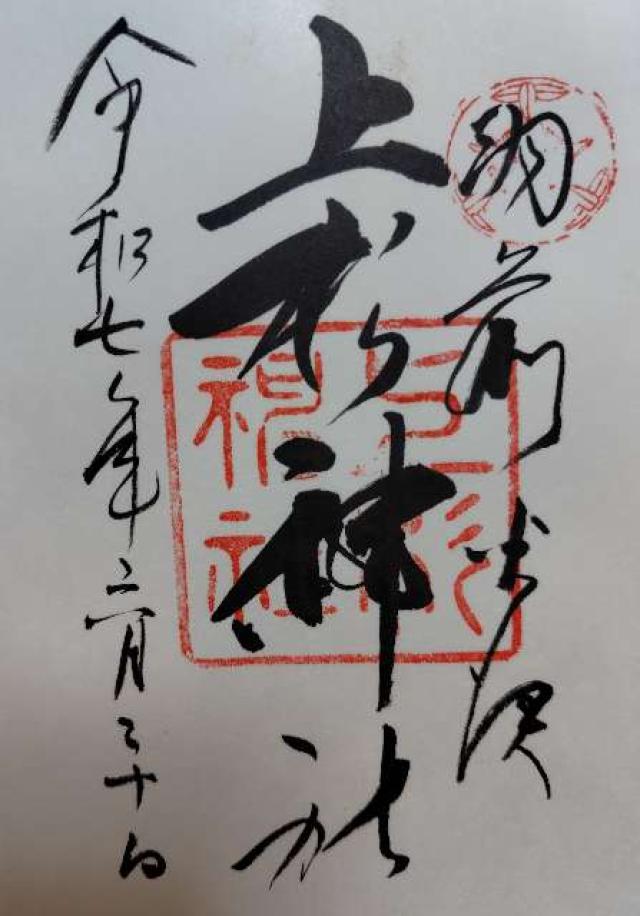 羽前米沢
上杉神社
令和七年六月三十日
上杉
神社